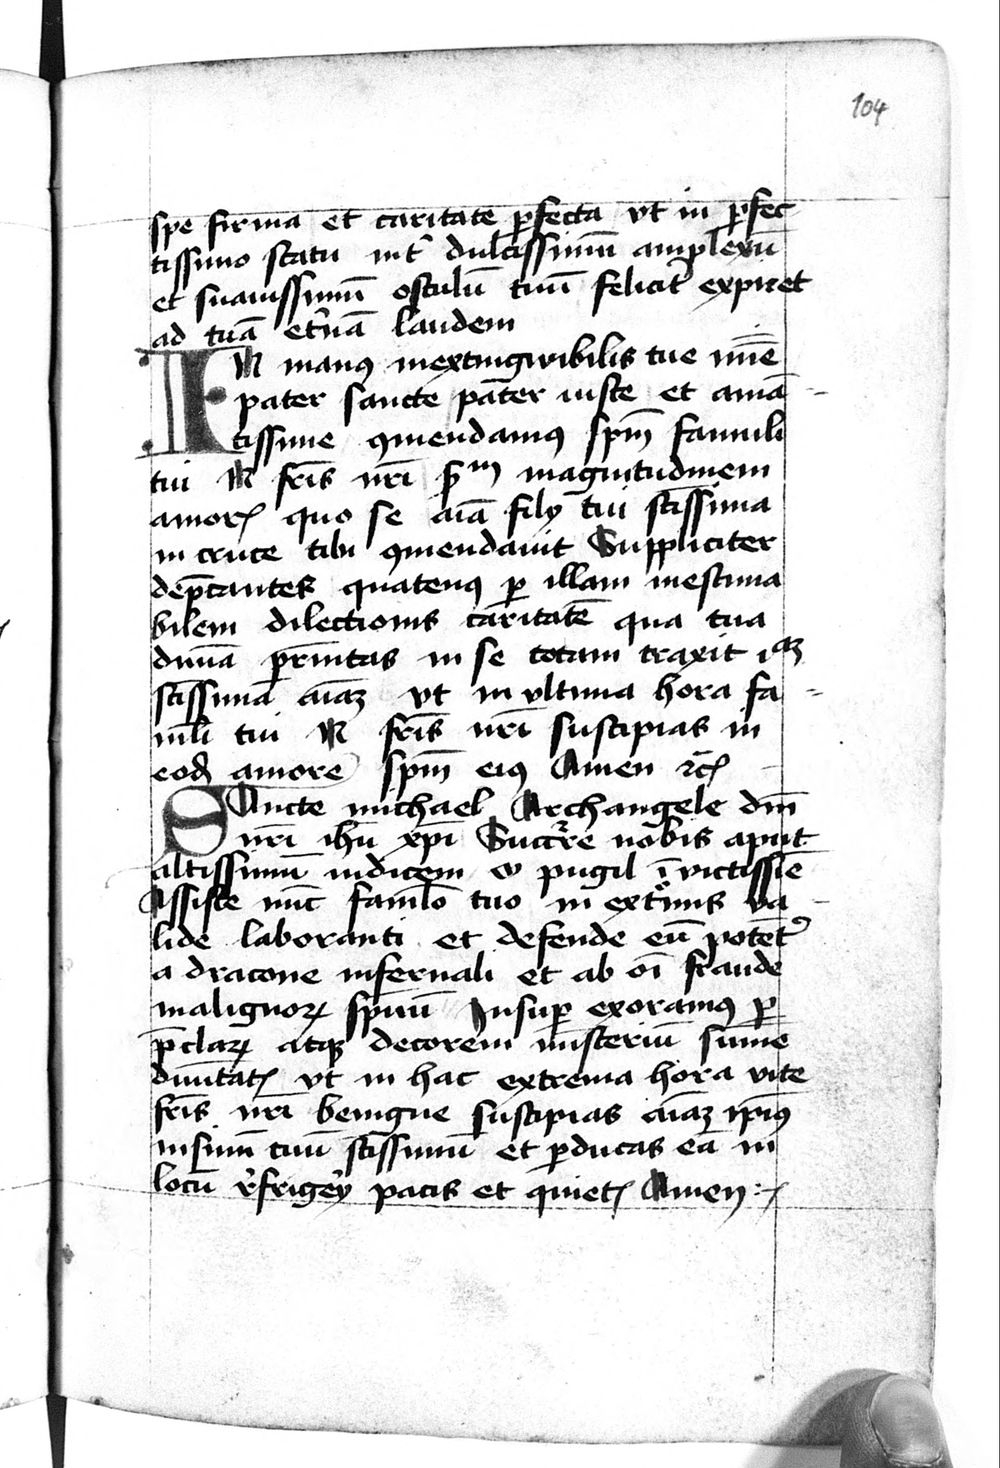 104
spe firma et caritate ꝑfecta vt in ꝑfec
tissimo statu int̾ dulcissimū amplexū
et suauissimū osculū tuū felicit̾ expiret
ad tuā et̾nā laudem
IN manꝰ inextingwibilis tue mīē
pater sancte pat̄er iuste et amā-
tissime ꝯmendamꝰ spm̄ famuli
tui N fr̄is nr̄i ẜm magnitudinem
amorꝭ quo se aīa filij tui sc̄issima
in cruce tibi ꝯmendauit Suppliciter
dep̄cantes quatenꝰ ꝑ illam inestima
bilem dilectionis caritatē qua tua
diuīa ꝑrnitas in se totam traxit
sc̄issimā aīaꝫ vt in vltima hora fa-
muli tui N fr̄is nr̄i suscipias in
eod̄ amore spm̄ eiꝰ Amen ⁊c̄
SAncte michael Archangele dn̄i
nr̄i ihū xp̄i Succ̾re nobis aput
altissimū iudicem o pugil īuictissīe
Assiste nūc famlo tuo in ext̾mis va-
lide laboranti et defende eū potēt̾
a dracone infernali et ab oī fraude
malignoꝝ sp̄uū Insuꝑ exoramꝰ ꝑ
p̄claꝝ atqꝫ decorem misteriū sūme
diuītatꝭ vt in hac extrema hora vite
fr̄is nr̄i benigne suscipias aīaꝫ ip̄iꝰ
in sinū tuū sc̄issimū et ꝑducas eā in
locū r̾frigerij pacis et quietꝭ Amen